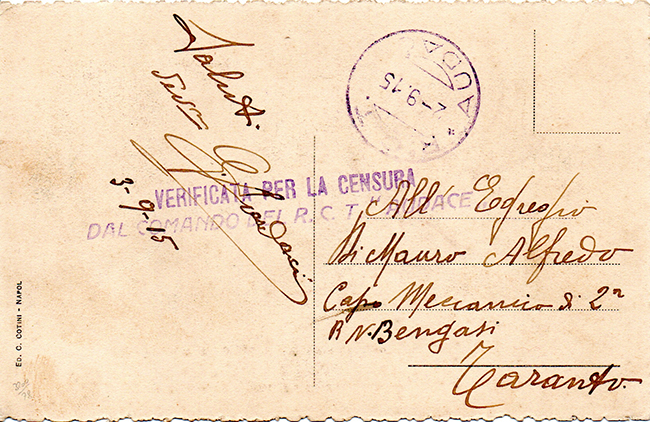 Saluti
3-9-15
VERIFICATA PER LA CENSURA
DAL COMANDO DEL R. C. T. "AUDACE
2-9.15
All' Egregio
Di Mauro Alfedo
Capo Meccanico di 2ª
R N. Bengasi
Taranto.
ED. C. COTINI - NAPOLI